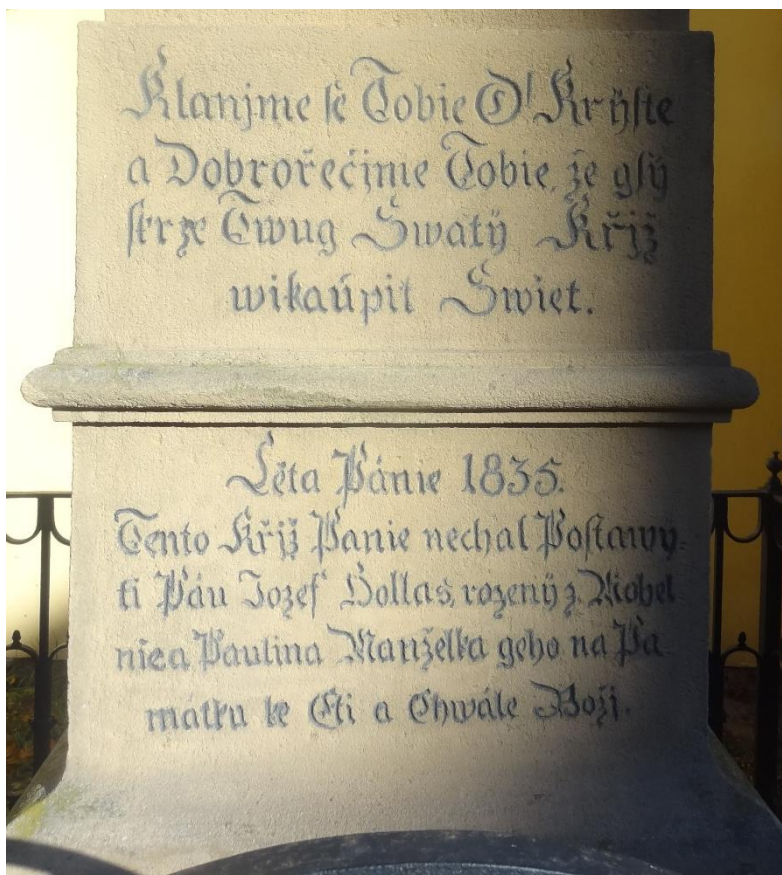 Klanjme se Tobie O! Krýste
a Dobrořečjme Tobie, že gsý
skrze Twug Swatý Křjž
wikaupil Swiet.
Léta Pánie 1835.
Tento Křjž Panie nechal Postawy-
ti Pán Jozef Hollas, rozený z. Mohel
nice a Paulina Manželka geho na Pa-
mátku ke Cti a Chwále Božj.